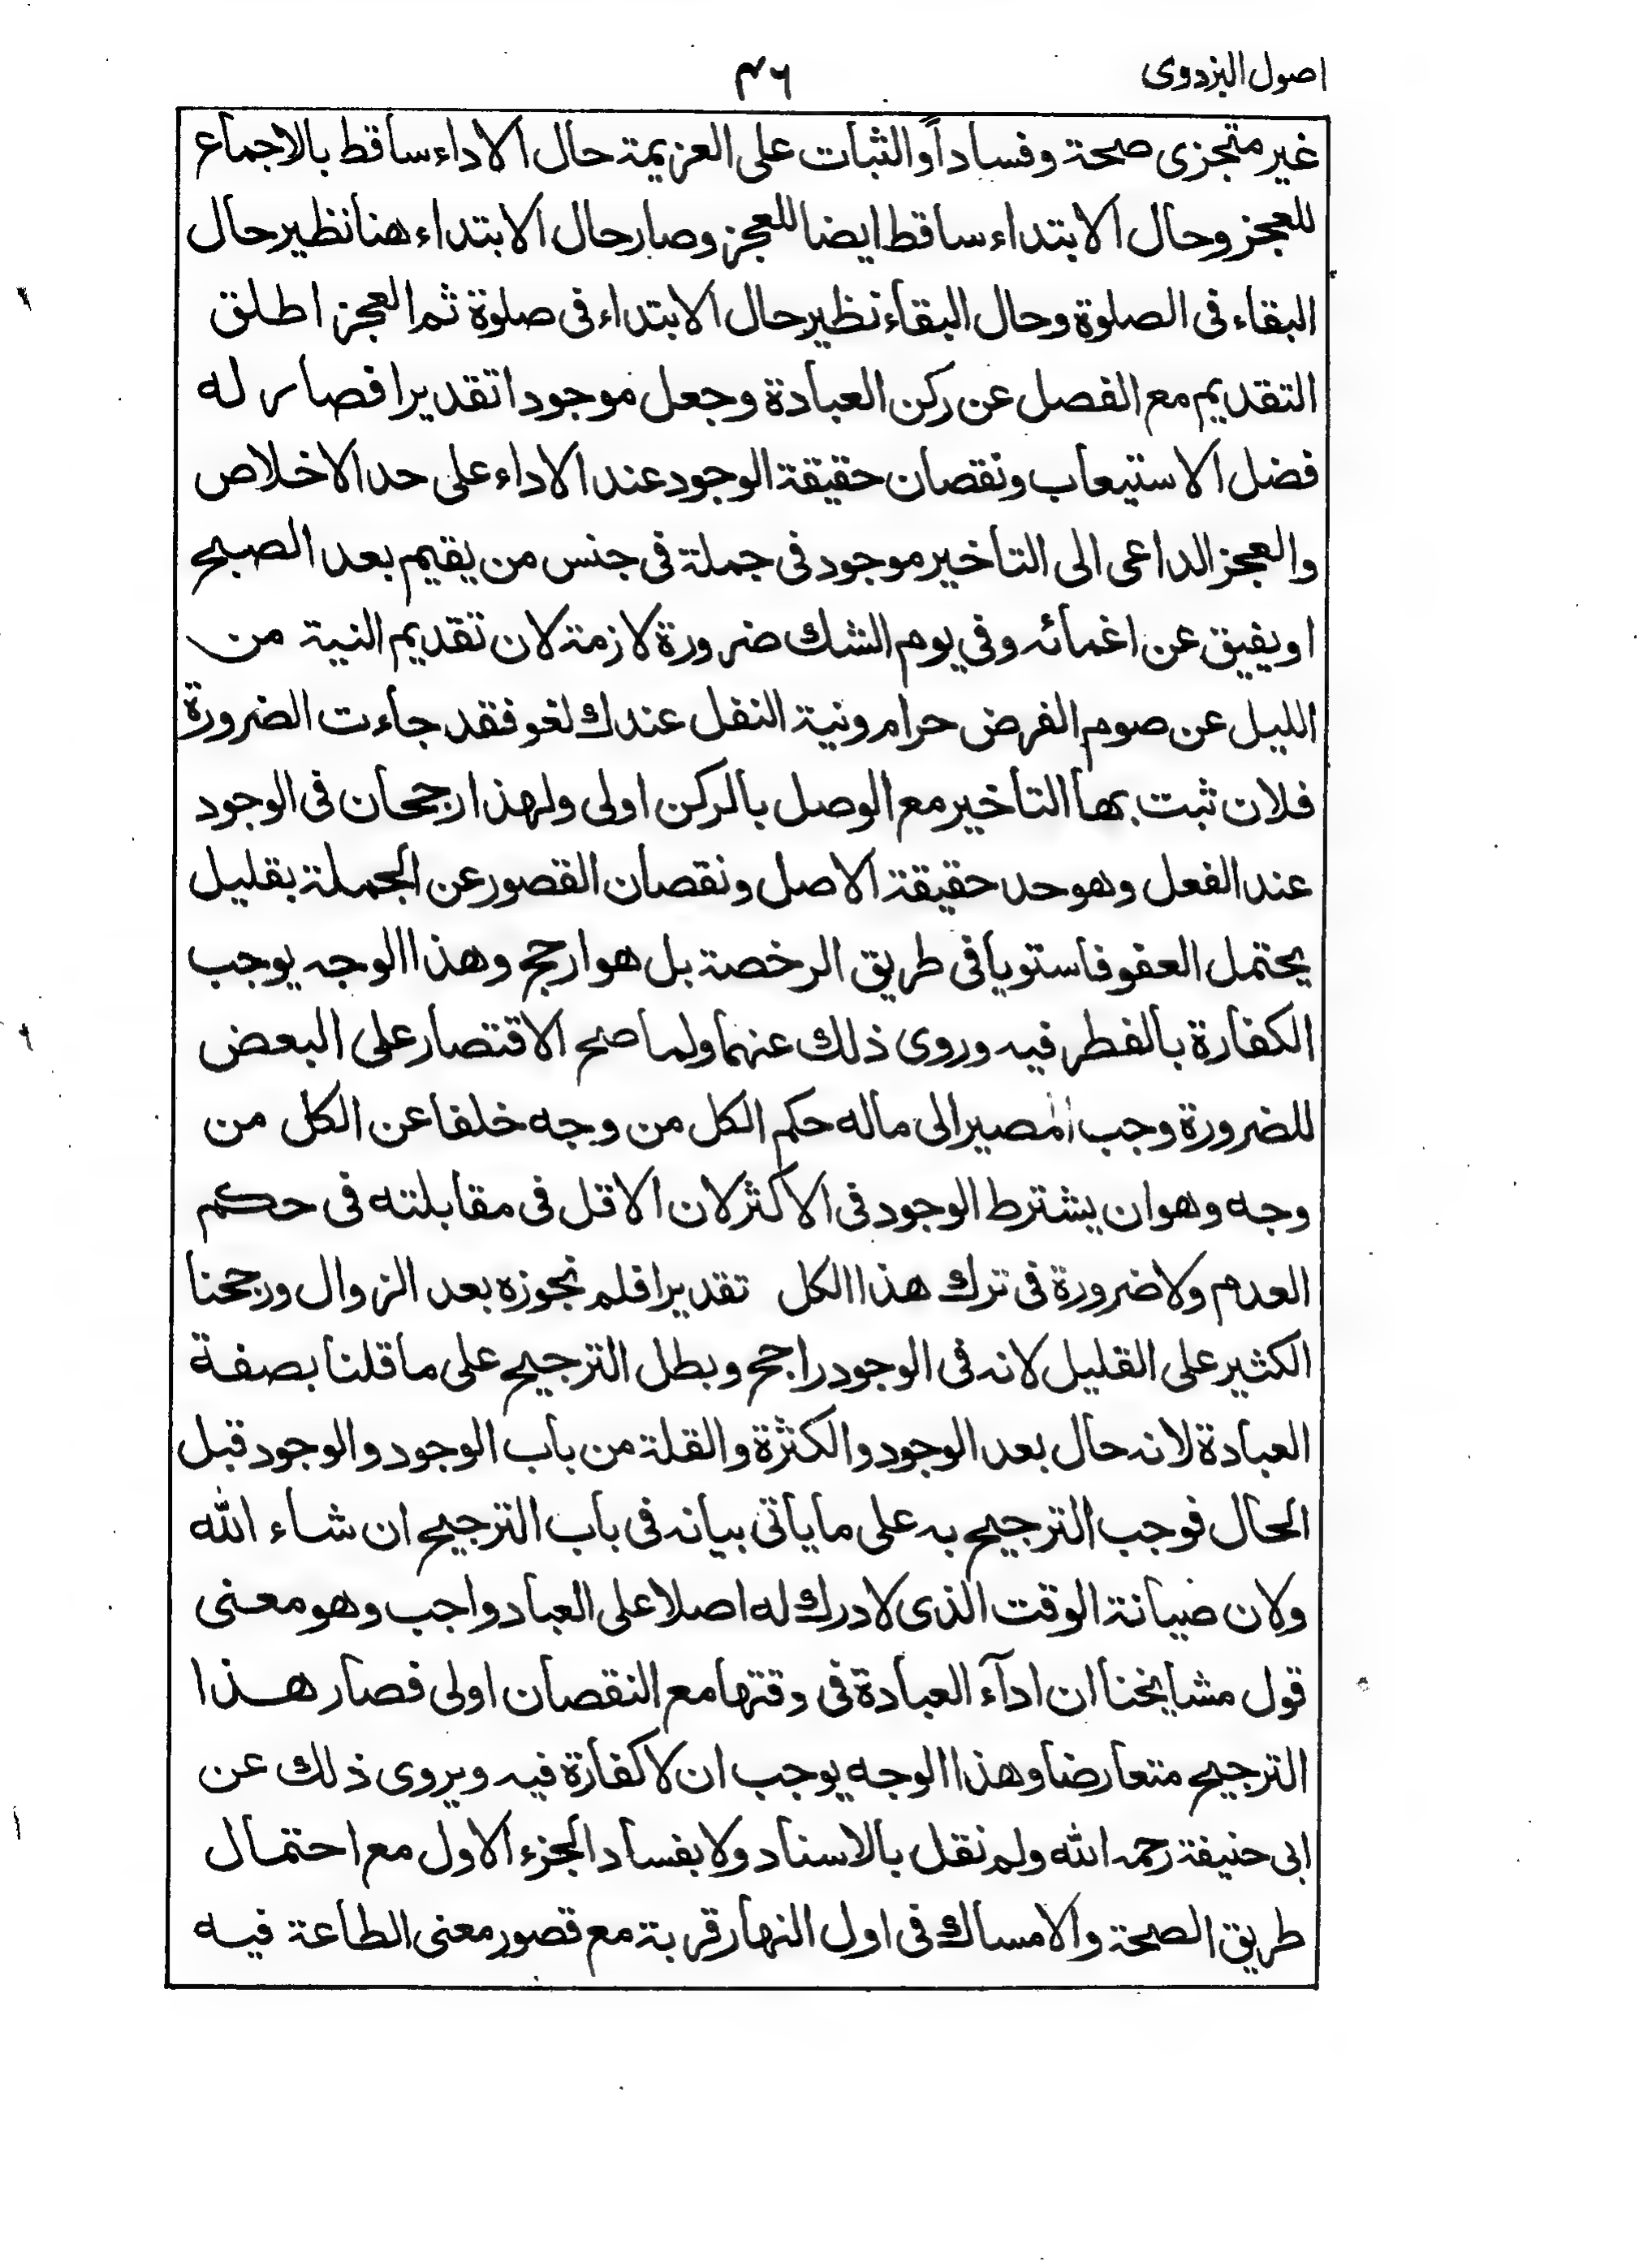 اصول البزدوى
۴۶
غير متجزى صحة وفسادا والثبات على العزيمة حال الاداء ساقط بالاجماع
للعجز وحال الابتداء ساقط ايضا للعجز وصار حال الابتداء هنا نظير حال
البقاء فى الصلوة وحال البقاء نظير حال الابتداء فى صلوة ثم العجز اطلق
التقديم مع الفصل عن ركن العبادة وجعل موجودا تقديرا فصار له
فضل الاستيعاب ونقصان حقيقة الوجود عند الاداء على حد الاخلاص
والعجز الداعى الى التاخير موجود فى جملة فى جنس من يقيم بعد الصبح
او يفيق عن اغمائه وفى يوم الشك ضرورة لازمة لان تقديم النية من
الليل عن صوم الفرض حرام ونية النفل عندك لغو فقد جاءت الضرورة
فلان ثبت بها التاخير مع الوصل بالركن اولى ولهذا رجحان فى الوجود
عند الفعل وهو حد حقيقة الاصل ونقصان القصور عن الجملة بقليل
يحتمل العفو فاستويا فى طريق الرخصة بل هو ارجح وهذا الوجه يوجب
الكفارة بالفطر فيه وروى ذلك عنهما ولما صح الاقتصار على البعض
للضرورة وجب المصير الى ماله حكم الكل من وجه خلفا عن الكل من
وجه وهو ان يشترط الوجود فى الاكثر لان الاقل فى مقابلته فى حكم
العدم ولا ضرورة فى ترك هذا الكل تقديرا فلم نجوزه بعد الزوال ورجحنا
الكثير على القليل لانه فى الوجود راجح وبطل الترجيح على ما قلنا بصفة
العبادة لانه حال بعد الوجود والكثرة والقلة من باب الوجود والوجود قبل
الحال فوجب الترجيح به على ما ياتى بيانه فى باب الترجيح ان شاء الله
ولان صيانة الوقت الذى لا درك له اصلا على العباد واجب وهو معنى
قول مشايخنا ان ادآء العبادة فى وقتها مع النقصان اولى فصار هذا
الترجيح متعارضا وهذا الوجه يوجب ان لا كفارة فيه ويروى ذلك عن
ابى حنيفة رحمه الله ولم نقل بالاسناد ولا بفساد الجزء الاول مع احتمال
طريق الصحة والامساك فى اول النهار قربة مع قصور معنى الطاعة فيه